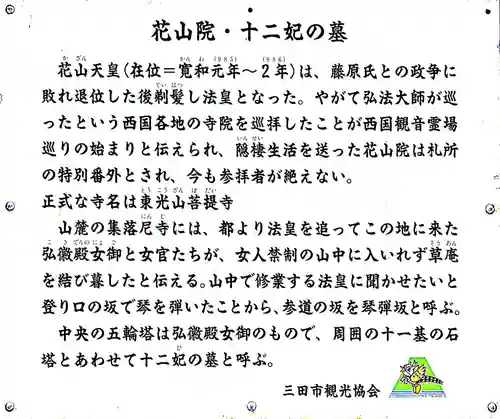 花山院・十二妃の墓
花山天皇(在位＝寛和元年～2年)は、藤原氏との政争に
敗れ退位した後剃髪し法皇となった。やがて弘法大師が巡
ったという西国各地の寺院を巡拝したことが西国観音霊場
巡りの始まりと伝えられ、隠棲生活を送った花山院は札所
の特別番外とされ、今も参拝者が絶えない。
正式な寺名は東光山菩提寺
山麓の集落尼寺には、都より法皇を追ってこの地に来た
弘徽殿女御と女官たちが、女人禁制の山中に入いれず草庵
を結び暮したと伝える。山中で修業する法皇に聞かせたいと
登り口の坂で琴を弾いたことから、参道の坂を琴弾坂と呼ぶ。
中央の五輪塔は弘徽殿女御のもので、周囲の十一基の石
塔とあわせて十二妃の墓と呼ぶ。
三田市観光協会